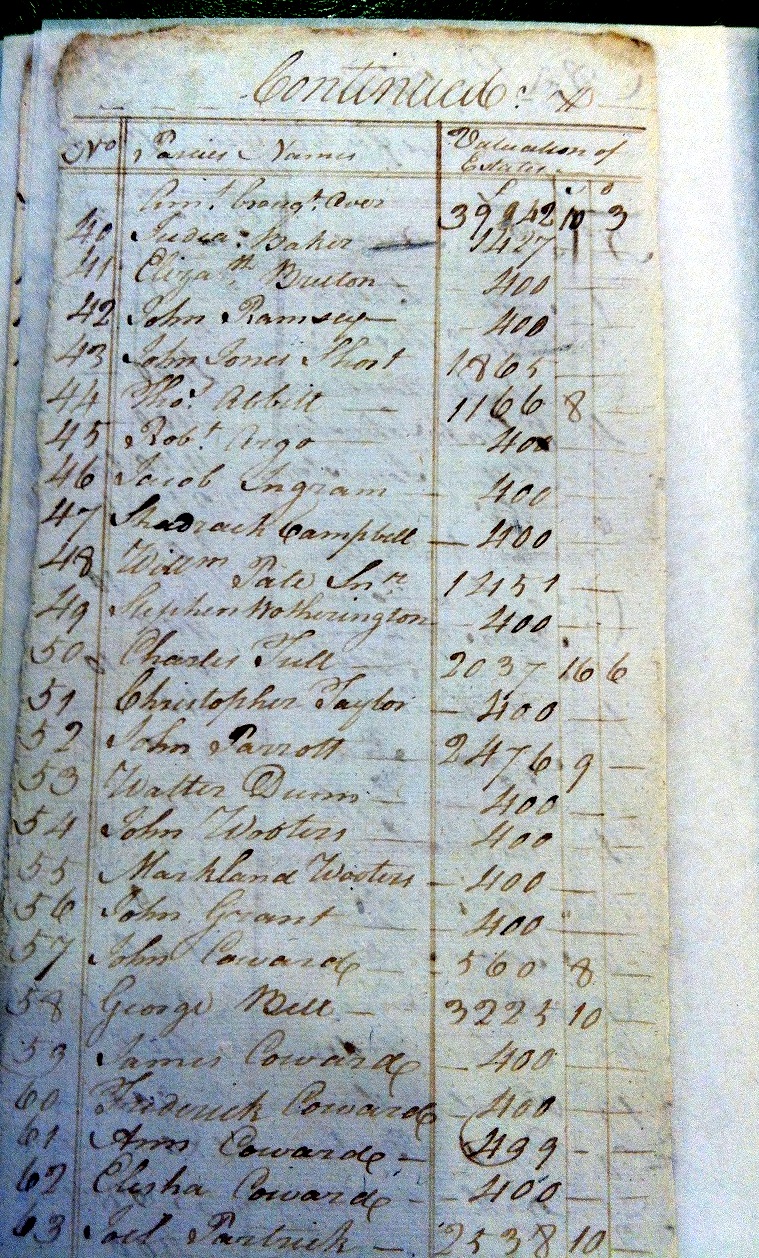 Continued
No Parties Names Valuation of
Estates
£ s d
Amt. brougt. over 39942 10 3
40 Baker 1427
41 Elizath. Bruton 400
42 John Ramsey 400
43 John Jones Short 1865
44 Thos. Abbitt 1166 8
45 Robt. Argo 400
46 Jacob Ingram 400
47 Shadrack Campbell 400
48 Willm Pate Snr
49 Stephen Wotherington 400
50 Charles Tull 2037 16 6
51 Christopher Taylor 400
52 John Parrott 2476 9
53 Walter Dunn 400
54 John Wooters 400
55 Markland Wooters 400
56 John Grant 400
57 John Coward 560 8
58 George Bell 3225 10
59 James Coward 400
60 Frederick Coward 400
61 Ann Coward 499
62 Elisha Coward 400
63 Joel Partrick 2538 10